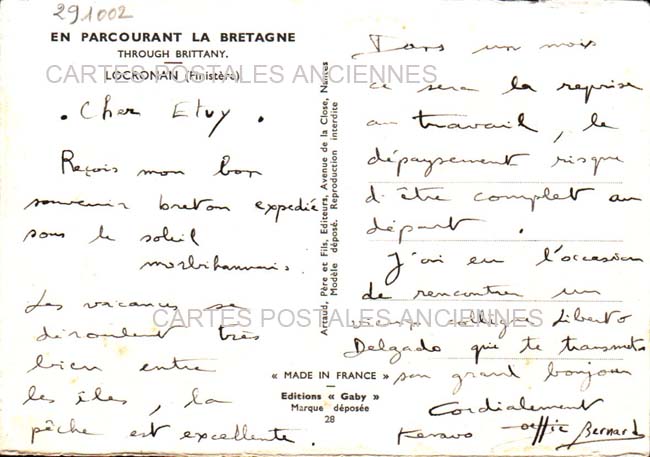 291002
EN PARCOURANT LA BRETAGNE
THROUGH BRITTANY.
LOCRONAN (Finistère)
CARTES POSTALES ANCIENNES
. Cher Etuy .
Reçois mon bon
souvenir breton expedié
sous le soleil
morbihannais.
Les vacances se
déroulent très
bien entre
les îles, la
pêche est excellente.
Artaud, Père et Fils, Editeurs, Avenue de la Close, Nantes
Modèle déposé. Reproduction interdite
« MADE IN FRANCE »
Editions « Gaby »
Marque déposée
28
Dans un mois
ce sera la reprise
au travail, le
dépaysement risque
d'être complet au
départ.
J'ai eu l'occasion
de rencontrer un
vieux collègue Liberto
CARTES POSTALES ANCIENNES
Delgado que te transmets
son grand bonjour
Cordialement
Bernard